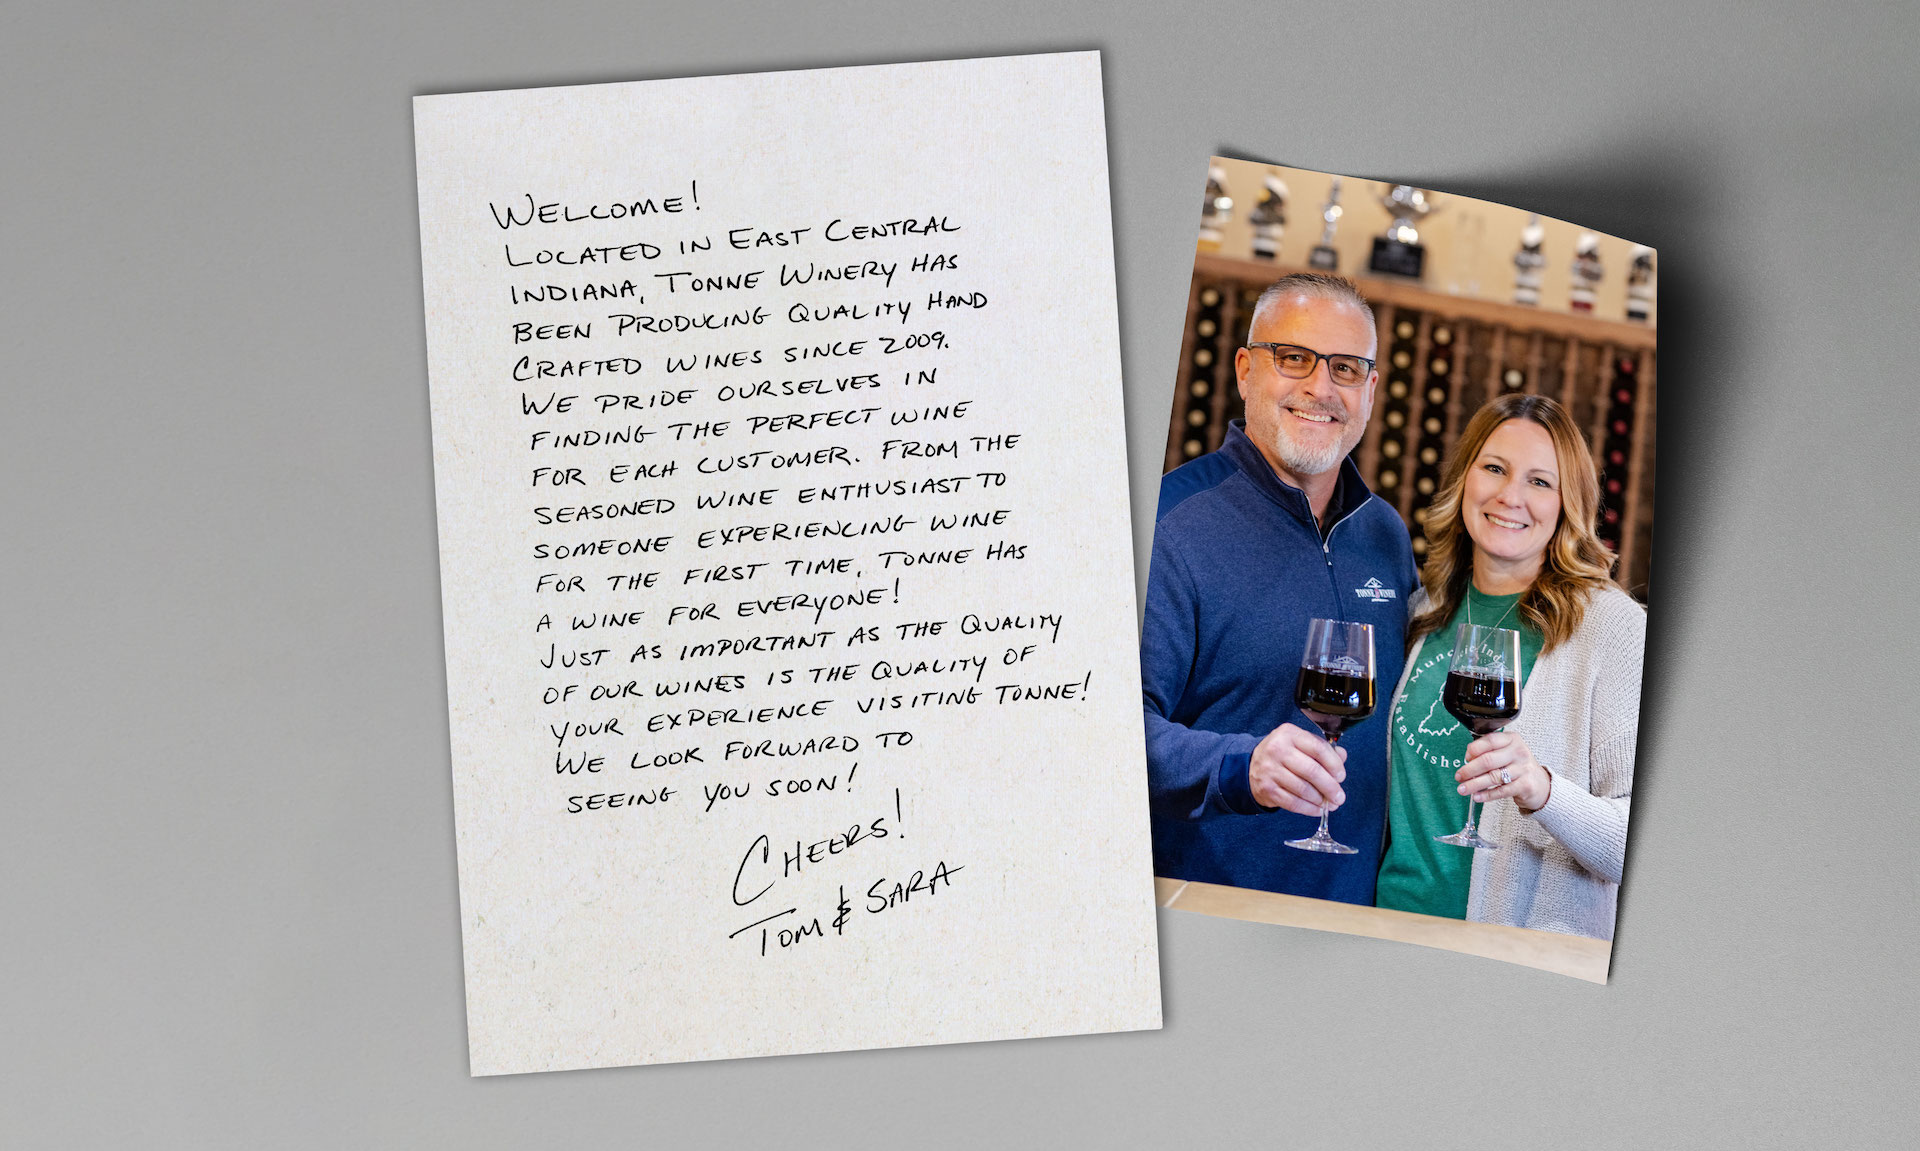 WELCOME!
LOCATED IN EAST CENTRAL
INDIANA, TONNE WINERY HAS
BEEN PRODUCING QUALITY HAND
CRAFTED WINES SINCE 2009.
WE PRIDE OURSELVES IN
FINDING THE PERFECT WINE
FOR EACH CUSTOMER. FROM THE
SEASONED WINE ENTHUSIAST TO
SOMEONE EXPERIENCING WINE
FOR THE FIRST TIME, TONNE HAS
A WINE FOR EVERYONE!
JUST AS IMPORTANT AS THE QUALITY
OF OUR WINES IS THE QUALITY OF
YOUR EXPERIENCE VISITING TONNE!
WE LOOK FORWARD TO
SEEING YOU SOON!
CHEERS!
TOM & SARA
TONNE WINERY
TONNE WINERY